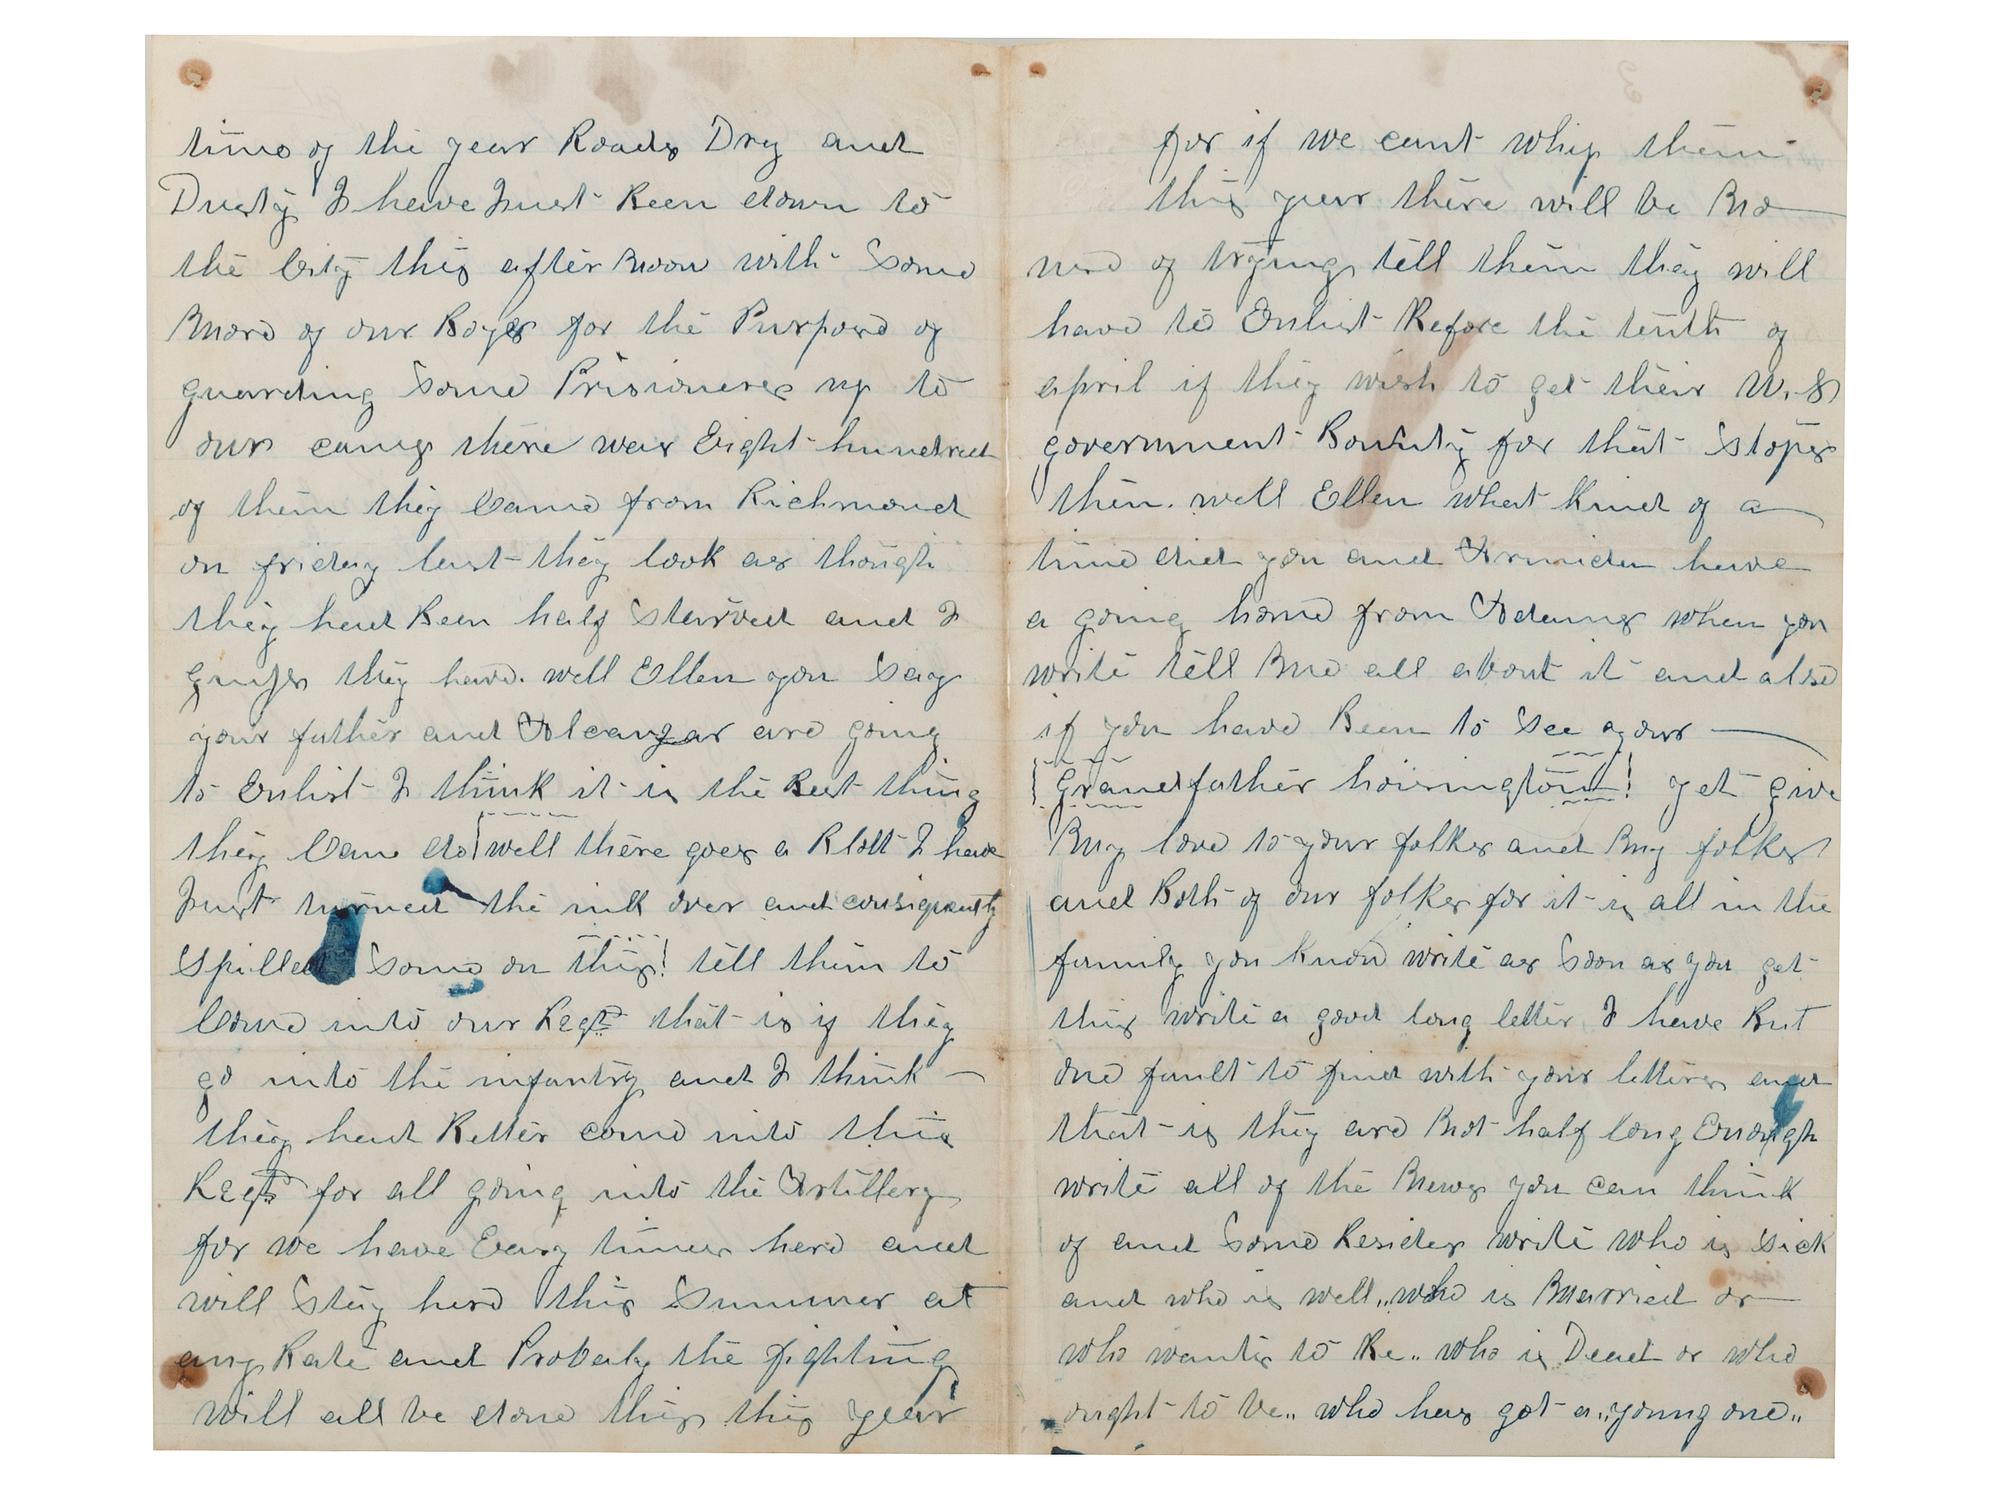 time of the year Roads Dry and
Dusty I have Just Been down to
the City this after Noon with Some
More of our Boys for the Purpose of
guarding Some Prisioners up to
our camp there was Eight hundred
of them they Came from Richmond
on friday last they look as though
they had Been half Starved and I
guess they have. well Ellen you Say
your father and Aleanzar are going
to Enlist I think it is the Best thing
they Can do well there goes a Blott I have
Just turned the ink over and consiquently
Spilled Some on this! tell them to
Come into our Regt that is if they
go into the infantry and I think —
they had Better come into this
Regt for all going into the Artillery
for we have Easy times here and
will Stay here this Summer at
any Rate and Probaly the fighting
will all be done this this year
for if we cant whip them
this year there will be No
use of trying tell them they will
have to Enlist Before the tenth of
april if they wish to get their U.S
government Bounty for that Stops
then. well Ellen what Kind of a
time did you and Armida have
a going home from Adams when you
write tell Me all about it and also
if you have Been to See your —
Grandfather hoisington! yet give
My love to your folks and My folks
and Both of our folks for it is all in the
family you Know write as Soon as you get
this write a good long letter I have But
one fault to find with your letters and
that is they are Not half long Enough
write all of the News you can think
of and Some Besides write who is Sick
and who is well,, who is Married or
who wants to Be,, who is Dead or who
ought to be,, who has got a,,young one,,